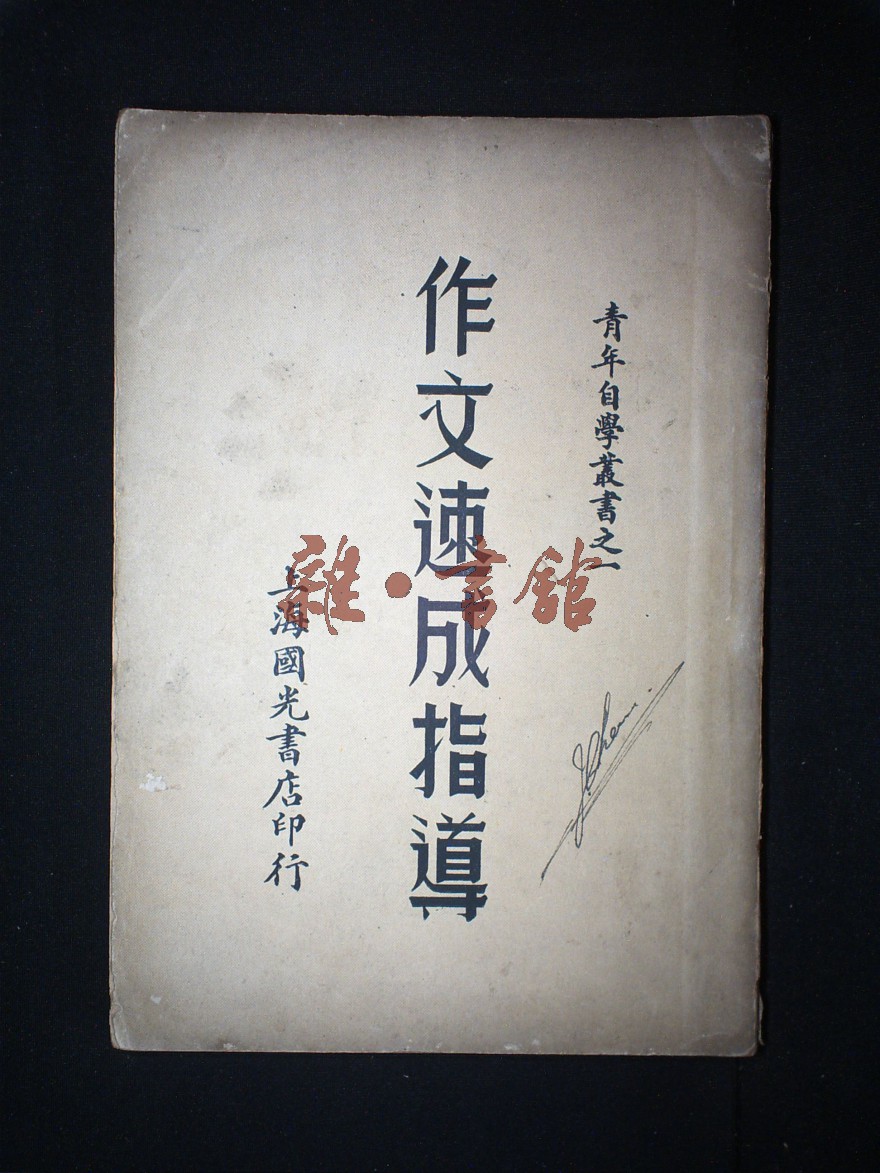 青年自學叢書之一
作文速成指導
上海國光書店印行
雜·書舘